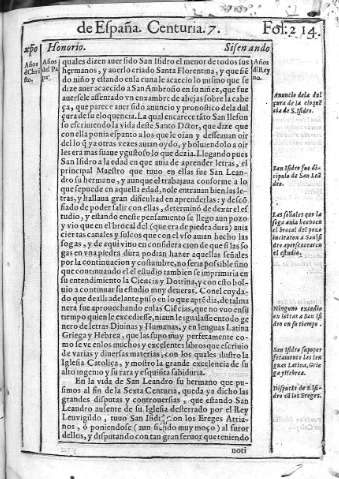 de España. Centuria. 7.
Fol: 214.
xpo
Honorio.
Sisenando
Años
de Chri
sto.
Años
del Pa
pa.
Años
del Rey
no.
quales dizen auer sido San Isidro el menor de todos sus
hermanos, y auerlo criado Santa Florentina, y que siē
do niño y estando en la cuna le acaecio lo mismo que se
dize auer acaecido a San Ambrosio en su niñez, que fue
auersele assentado vn enxambre de abejas sobre la cabe
ça, que parece auer sido anuncio y pronostico dela dul
çura de su eloquencia. La qual encarece tāto San Ilefon
so escriuiendo la vida deste Santo Dotor, que dize que
con ella ponia espanto a los que le oian y
lo q̄ ya otras vezes auian oydo, y boluiendolo a oir
les era mas suaue y gustoso lo que dezia. Llegando pues
San Isidro a la edad en que auia de aprender letras, el
principal Maestro que tuuo en ellas fue San Lean-
dro su hermano, y aunque el trabajaua conforme a lo
que se puede en aquella edad, no le entrauan bien las le-
tras, y hallaua gran dificultad en aprenderlas: y descō
fiado de poder salir con ellas, determinò de dexar el es
tudio, y estando en este pensamiento se llego a vn pozo
y vio que en el brocal del (que era de piedra dura) auia
ciertas canales y solcos que con el vso auian hecho las
sogas, y de aqui vino en consideracion de que si las so
gas en vna piedra dura podian hazer aquellas señales
por la continuacion y costumbre, no seria possible sino
que continuando el el estudio tambien se imprimiria en
su entendimiento la Ciencia y Dotrina, y con esto bol-
uio a continuar su estudio muy deueras. Con el cuyda-
do que de alli adelante puso en lo que aprēdia, de tal ma
nera fue aprouechando en las Ciencias, que no vuo en su
tiempo quien le excediesse, ni aun le igualasse en todo ge
nero de letras Diuinas y Humanas, y en lenguas Latina
Griega y Hebrea, que las supo muy perfetamente: co-
mo se ve en los muchos y excelentes libros que escriuio
de varias y diuersas materias, con los quales ilustro la
Iglesia Catolica, y mostro la grande excelencia de su
alto ingenio y su rara y esquisita sabiduria.
En la vida de San Leandro su hermano que pu-
simos al fin de la Sexta Centuria, queda ya dicho las
grandes disputas y controuersias, que estando San
Leandro ausente de su Iglesia desterrado por el Rey
Leuuigildo, tuuo San Isidro con los Ereges Arria-
nos, ò poniendose (aun siendo muy moço) al furor
dellos, y disputando con tan gran feruor que teniendo
noti
Anuncio dela dul
çura de la eloquē
cia de S. Isidro.
San Isidro fue di-
cipulo de San Leā
dro.
Las señales que la
soga auia hecho en
el brocal del pozo
incitaron a San Isi
dro aperseuerar en
el estudio.
Ninguno excedio
en letras a San Isi
dro en su tiempo.
San Isidro supo per
fetamente las len
guas Latina, Grie
ga y Hebrea.
Disputa de S. Isi
dro cō los Ereges.